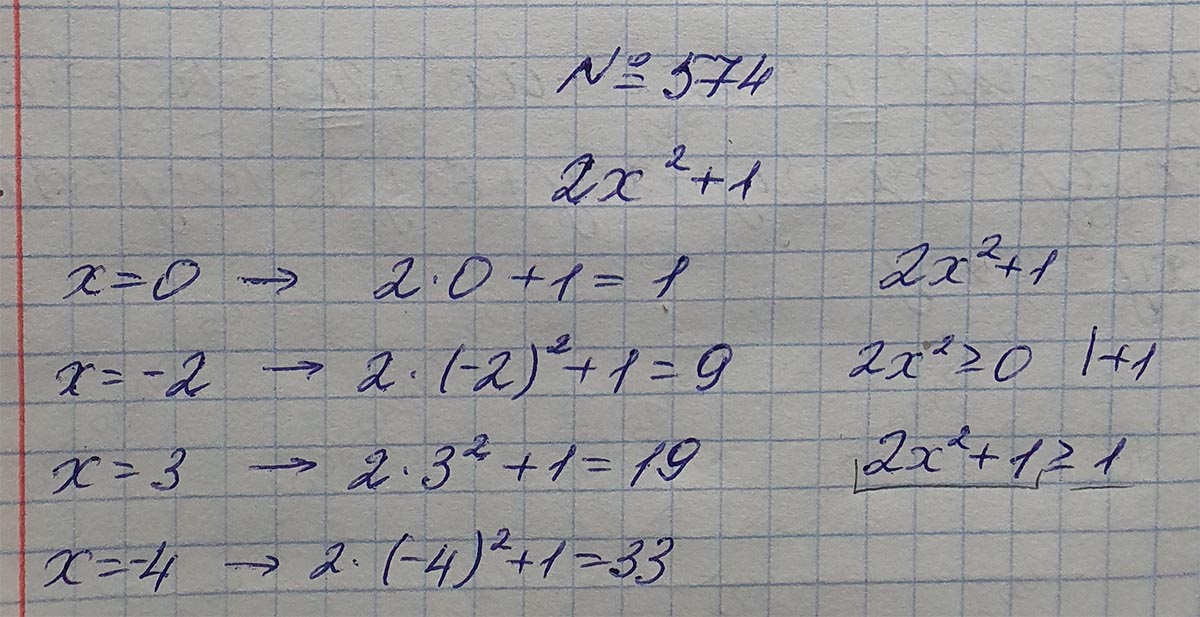 № 574
2x² + 1
x = 0 → 2·0 + 1 = 1
x = -2 → 2·(-2)² + 1 = 9
x = 3 → 2·3² + 1 = 19
x = -4 → 2·(-4)² + 1 = 33
2x² + 1
2x² ≥ 0 | +1
2x² + 1 ≥ 1